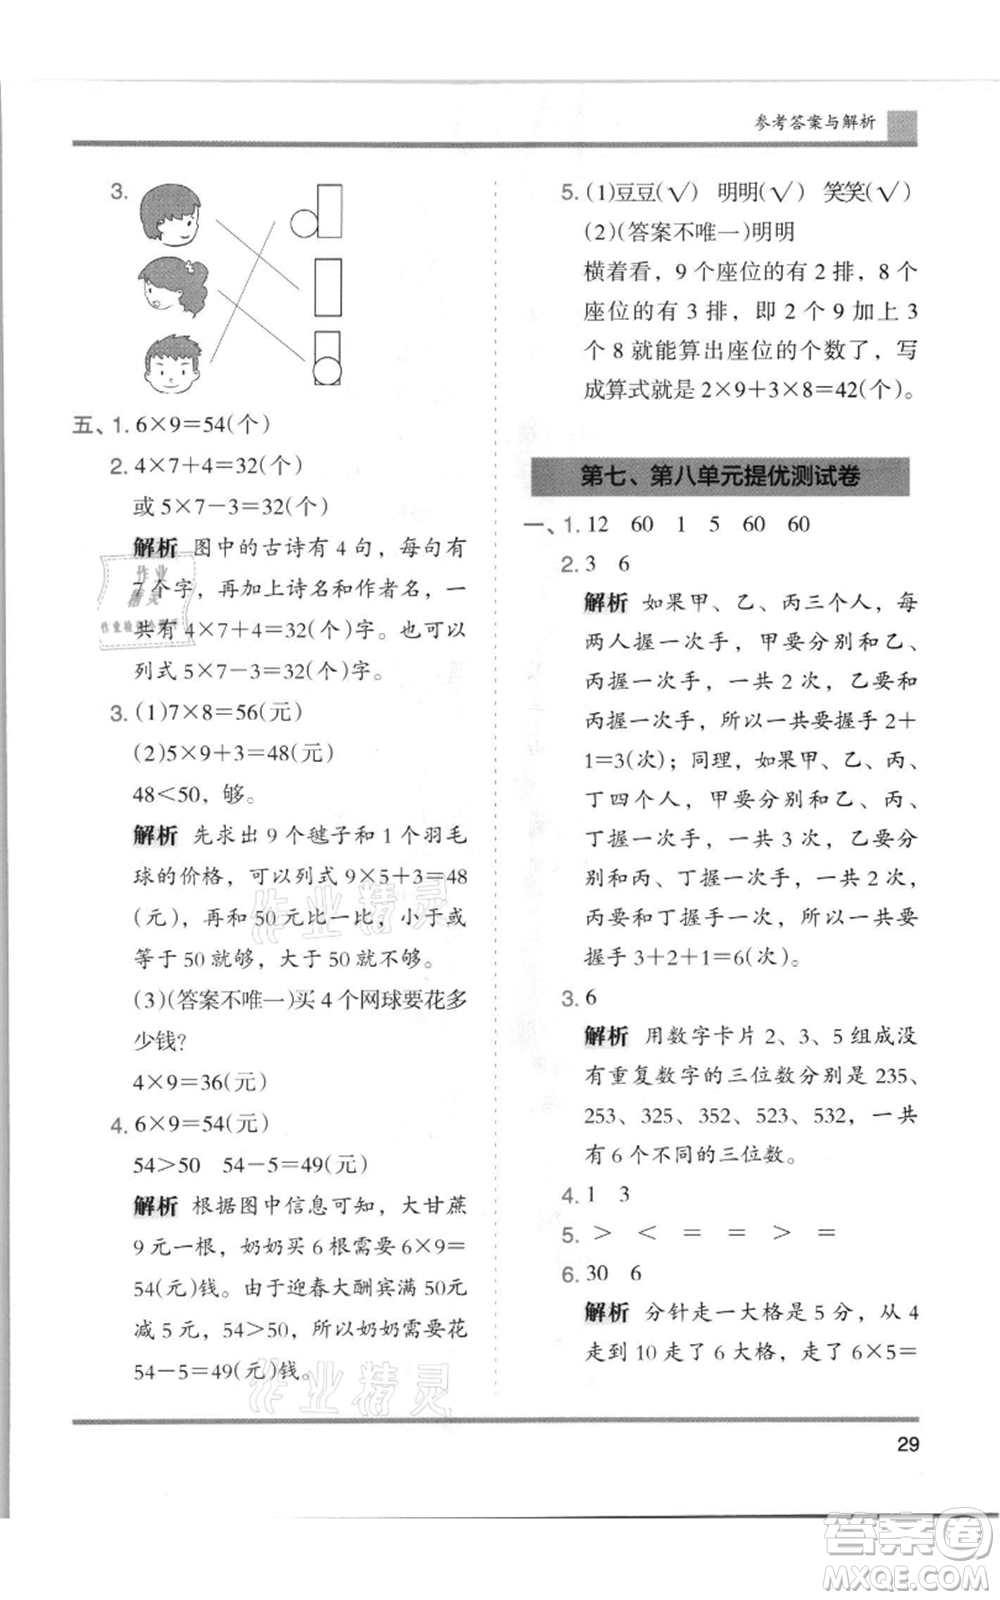 参考答案与解析
3.
五、1. 6×9=54(个)
2. 4×7+4=32(个)
或 5×7-3=32(个)
解析 图中的古诗有 4 句，每句有
7 个字，再加上诗名和作者名，一
共有 4×7+4=32(个)字。也可以
列式 5×7-3=32(个)字。
3. (1)7×8=56(元)
(2)5×9+3=48(元)
48<50，够。
解析 先求出 9 个毽子和 1 个羽毛
球的价格，可以列式 9×5+3=48
(元)，再和 50 元比一比，小于或
等于 50 就够，大于 50 就不够。
(3)(答案不唯一)买 4 个网球要花多
少钱?
4×9=36(元)
4. 6×9=54(元)
54>50 54-5=49(元)
解析 根据图中信息可知，大甘蔗
9 元一根，奶奶买 6 根需要 6×9=
54(元)钱。由于迎春大酬宾满 50元
减 5 元，54>50，所以奶奶需要花
54-5=49(元)钱。
5. (1)豆豆(√) 明明(√) 笑笑(√)
(2)(答案不唯一)明明
横着看，9 个座位的有 2 排，8 个
座位的有 3 排，即 2 个 9 加上 3
个 8 就能算出座位的个数了，写
成算式就是 2×9+3×8=42(个)。
第七、第八单元提优测试卷
一、1. 12 60 1 5 60 60
2. 3 6
解析 如果甲、乙、丙三个人，每
两人握一次手，甲要分别和乙、
丙握一次手，一共 2 次，乙要和
丙握一次手，所以一共要握手 2+
1=3(次)；同理，如果甲、乙、丙、
丁四个人，甲要分别和乙、丙、
丁握一次手，一共 3 次，乙要分
别和丙、丁握一次手，一共 2 次，
丙要和丁握手一次，所以一共要
握手 3+2+1=6(次)。
3. 6
解析 用数字卡片 2、3、5 组成没
有重复数字的三位数分别是 235、
253、325、352、523、532，一共
有 6 个不同的三位数。
4. 1 3
5. > < = = > =
6. 30 6
解析 分针走一大格是 5 分，从 4
走到 10 走了 6 大格，走了 6×5=
29
作业
精灵
作业精灵
作业精灵
答案卷
MXQE.COM